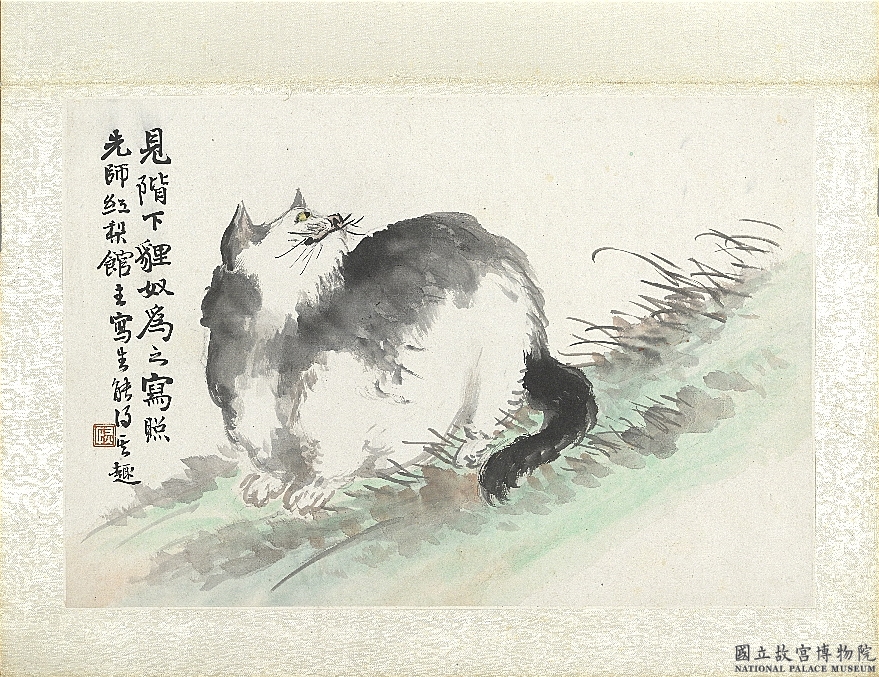 見階下貍奴為之寫照
先師紅棃館主寫生能得其趣
國立故宮博物院
NATIONAL PALACE MUSEUM